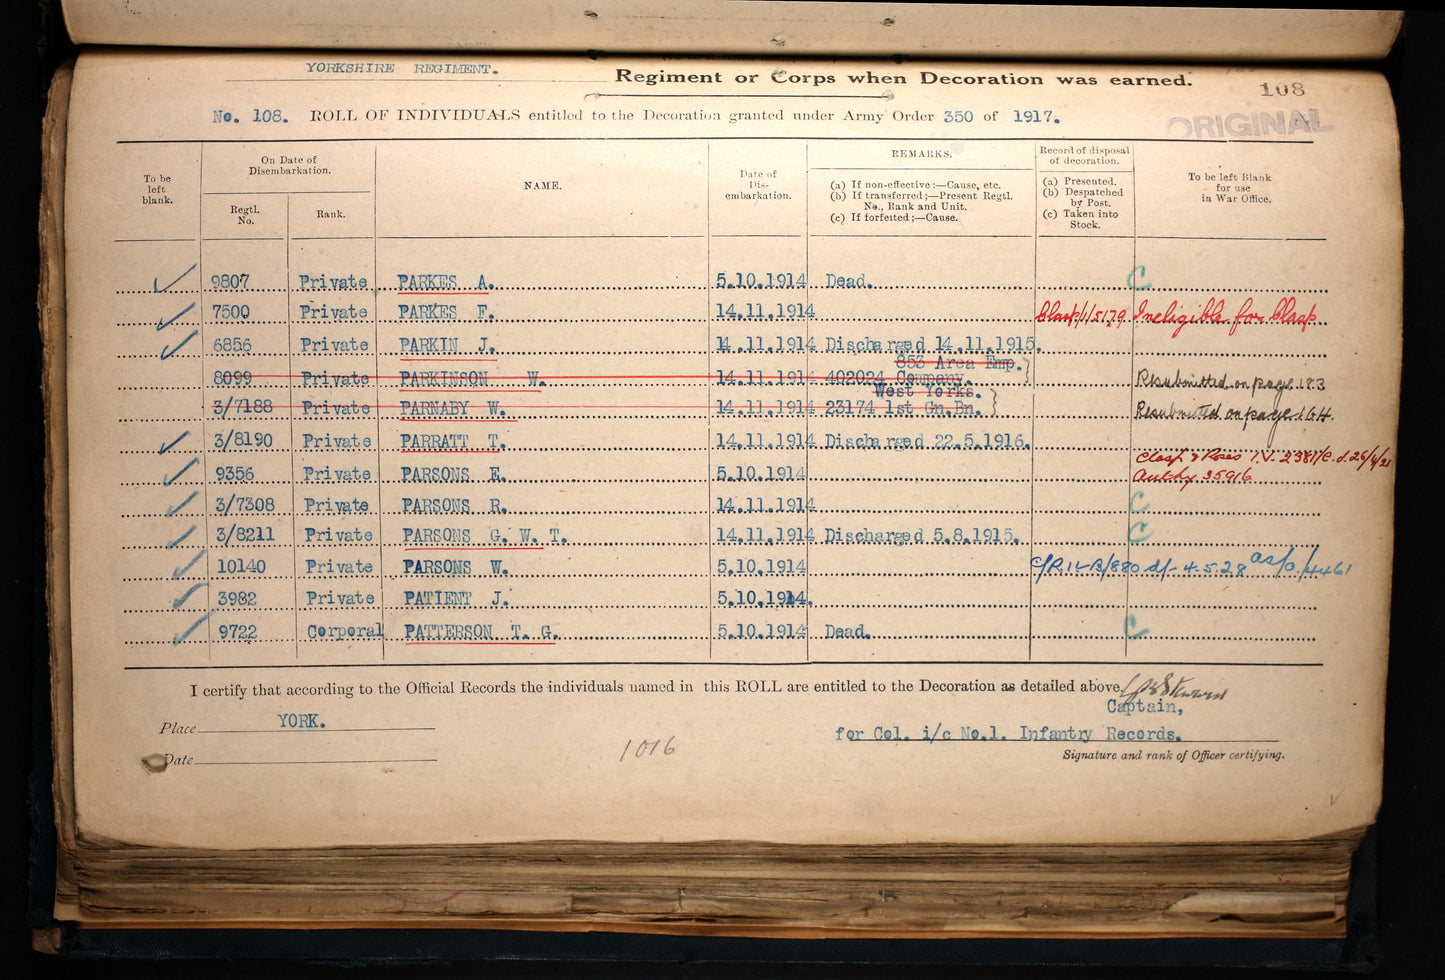 YORKSHIRE REGIMENT. Regiment or Corps when Decoration was earned.
108
No. 108. ROLL OF INDIVIDUALS entitled to the Decoration granted under Army Order 350 of 1917.
ORIGINAL
To be left blank.
On Date of Disembarkation.
Regtl. No.
Rank.
NAME.
Date of Dis-embarkation.
REMARKS.
(a) If non-effective:—Cause, etc.
(b) If transferred;—Present Regtl. No., Rank and Unit.
(c) If forfeited;—Cause.
Record of disposal of decoration.
(a) Presented.
(b) Despatched by Post.
(c) Taken into Stock.
To be left Blank for use in War Office.
9807 Private PARKES A. 5.10.1914 Dead. C
7500 Private PARKES F. 14.11.1914 Clasp/1/5179 Ineligible for Clasp
6856 Private PARKIN J. 14.11.1914 Discharged 14.11.1915.
853 Area Emp.
8099 Private PARKINSON W. 14.11.1914 402024 Company. Resubmitted on page 183
West Yorks.
3/7188 Private PARNABY W. 14.11.1914 23174 1st Gn.Bn. Resubmitted on page
3/8190 Private PARRATT T. 14.11.1914 Discharged 22.5.1916.
Clasp & Roses I.V. 2381/C.d. 26/4/21
9356 Private PARSONS E. 5.10.1914 Authy 35916
3/7308 Private PARSONS R. 14.11.1914 C
3/8211 Private PARSONS G. W. T. 14.11.1914 Discharged 5.8.1915. C
10140 Private PARSONS W. 5.10.1914 4.5.28
3982 Private PATIENT J. 5.10.1914.
9722 Corporal PATTERSON T. G. 5.10.1914 Dead. C
I certify that according to the Official Records the individuals named in this ROLL are entitled to the Decoration as detailed above
Captain,
Place YORK.
for Col. i/c No.1. Infantry Records.
1016
Date
Signature and rank of Officer certifying.